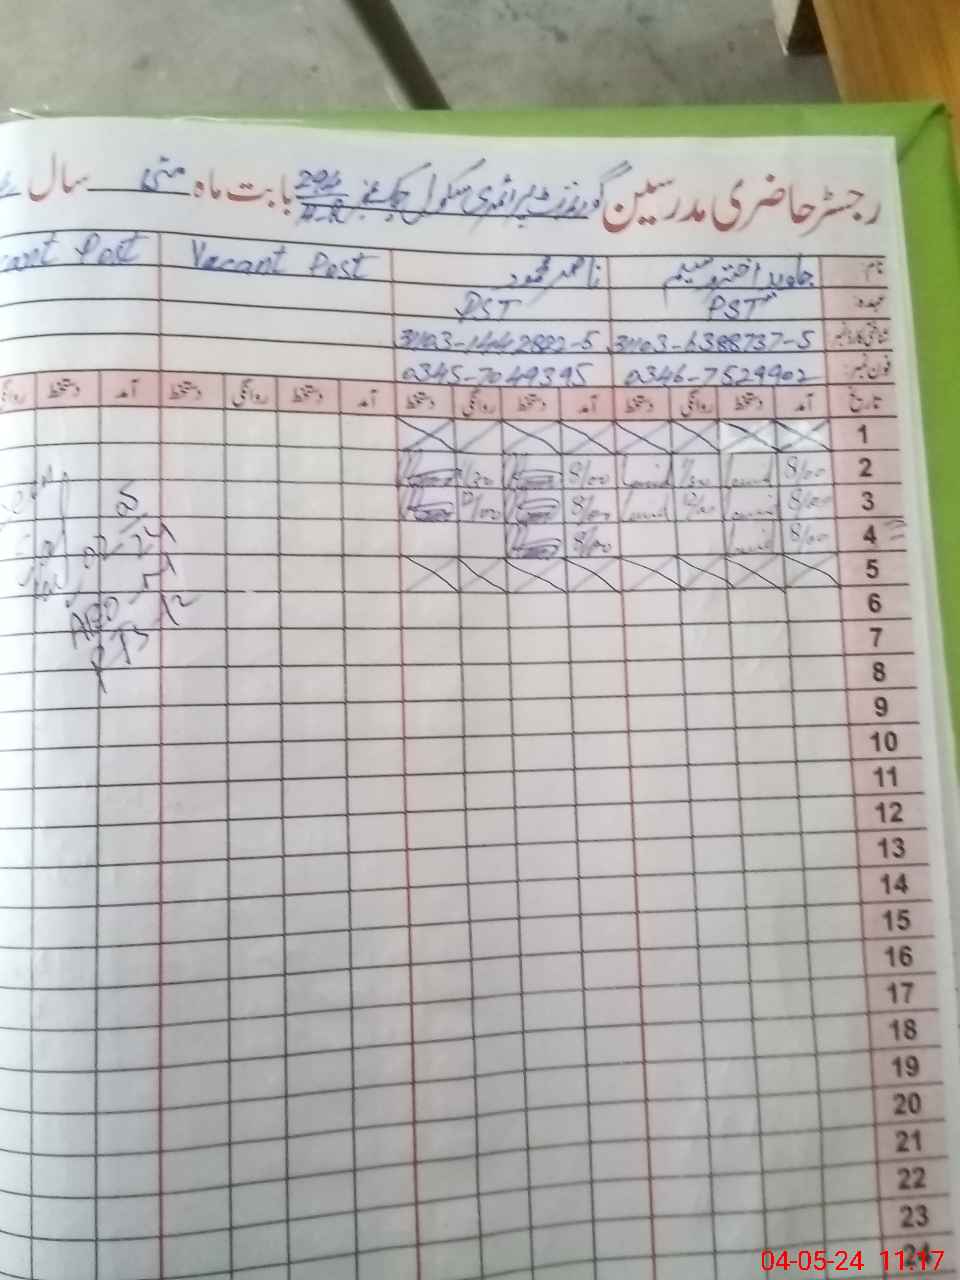 رجسٹر حاضری مدرسین گورنمنٹ پرائمری سکول چک نمبر 294 بابت ماہ مئی سال
نام جاوید اختر ناصر محمود Vacant Post Vacant Post
عہدہ PST PST
شناختی کارڈ نمبر 31103-6388737-5 31103-1442882-5
فون نمبر 0346-7529902 0345-7049395
تاریخ آمد دستخط روانگی دستخط آمد دستخط روانگی دستخط آمد دستخط روانگی دستخط آمد دستخط روانگی
1
2 8/00 8/00
3 8/00 8/00
4 8/00 8/00
5
6
7
8
9
10
11
12
13
14
15
16
17
18
19
20
21
22
23
24
04-05-24 11:17